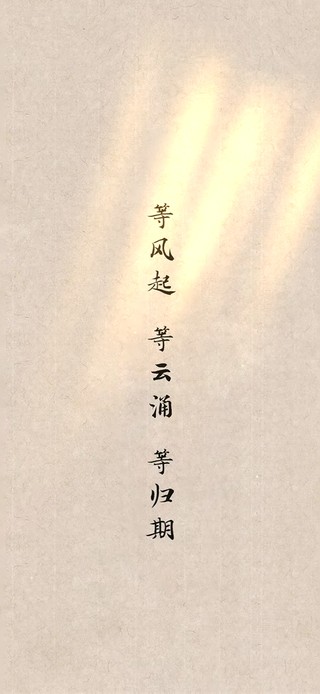 等风起 等云涌 等归期